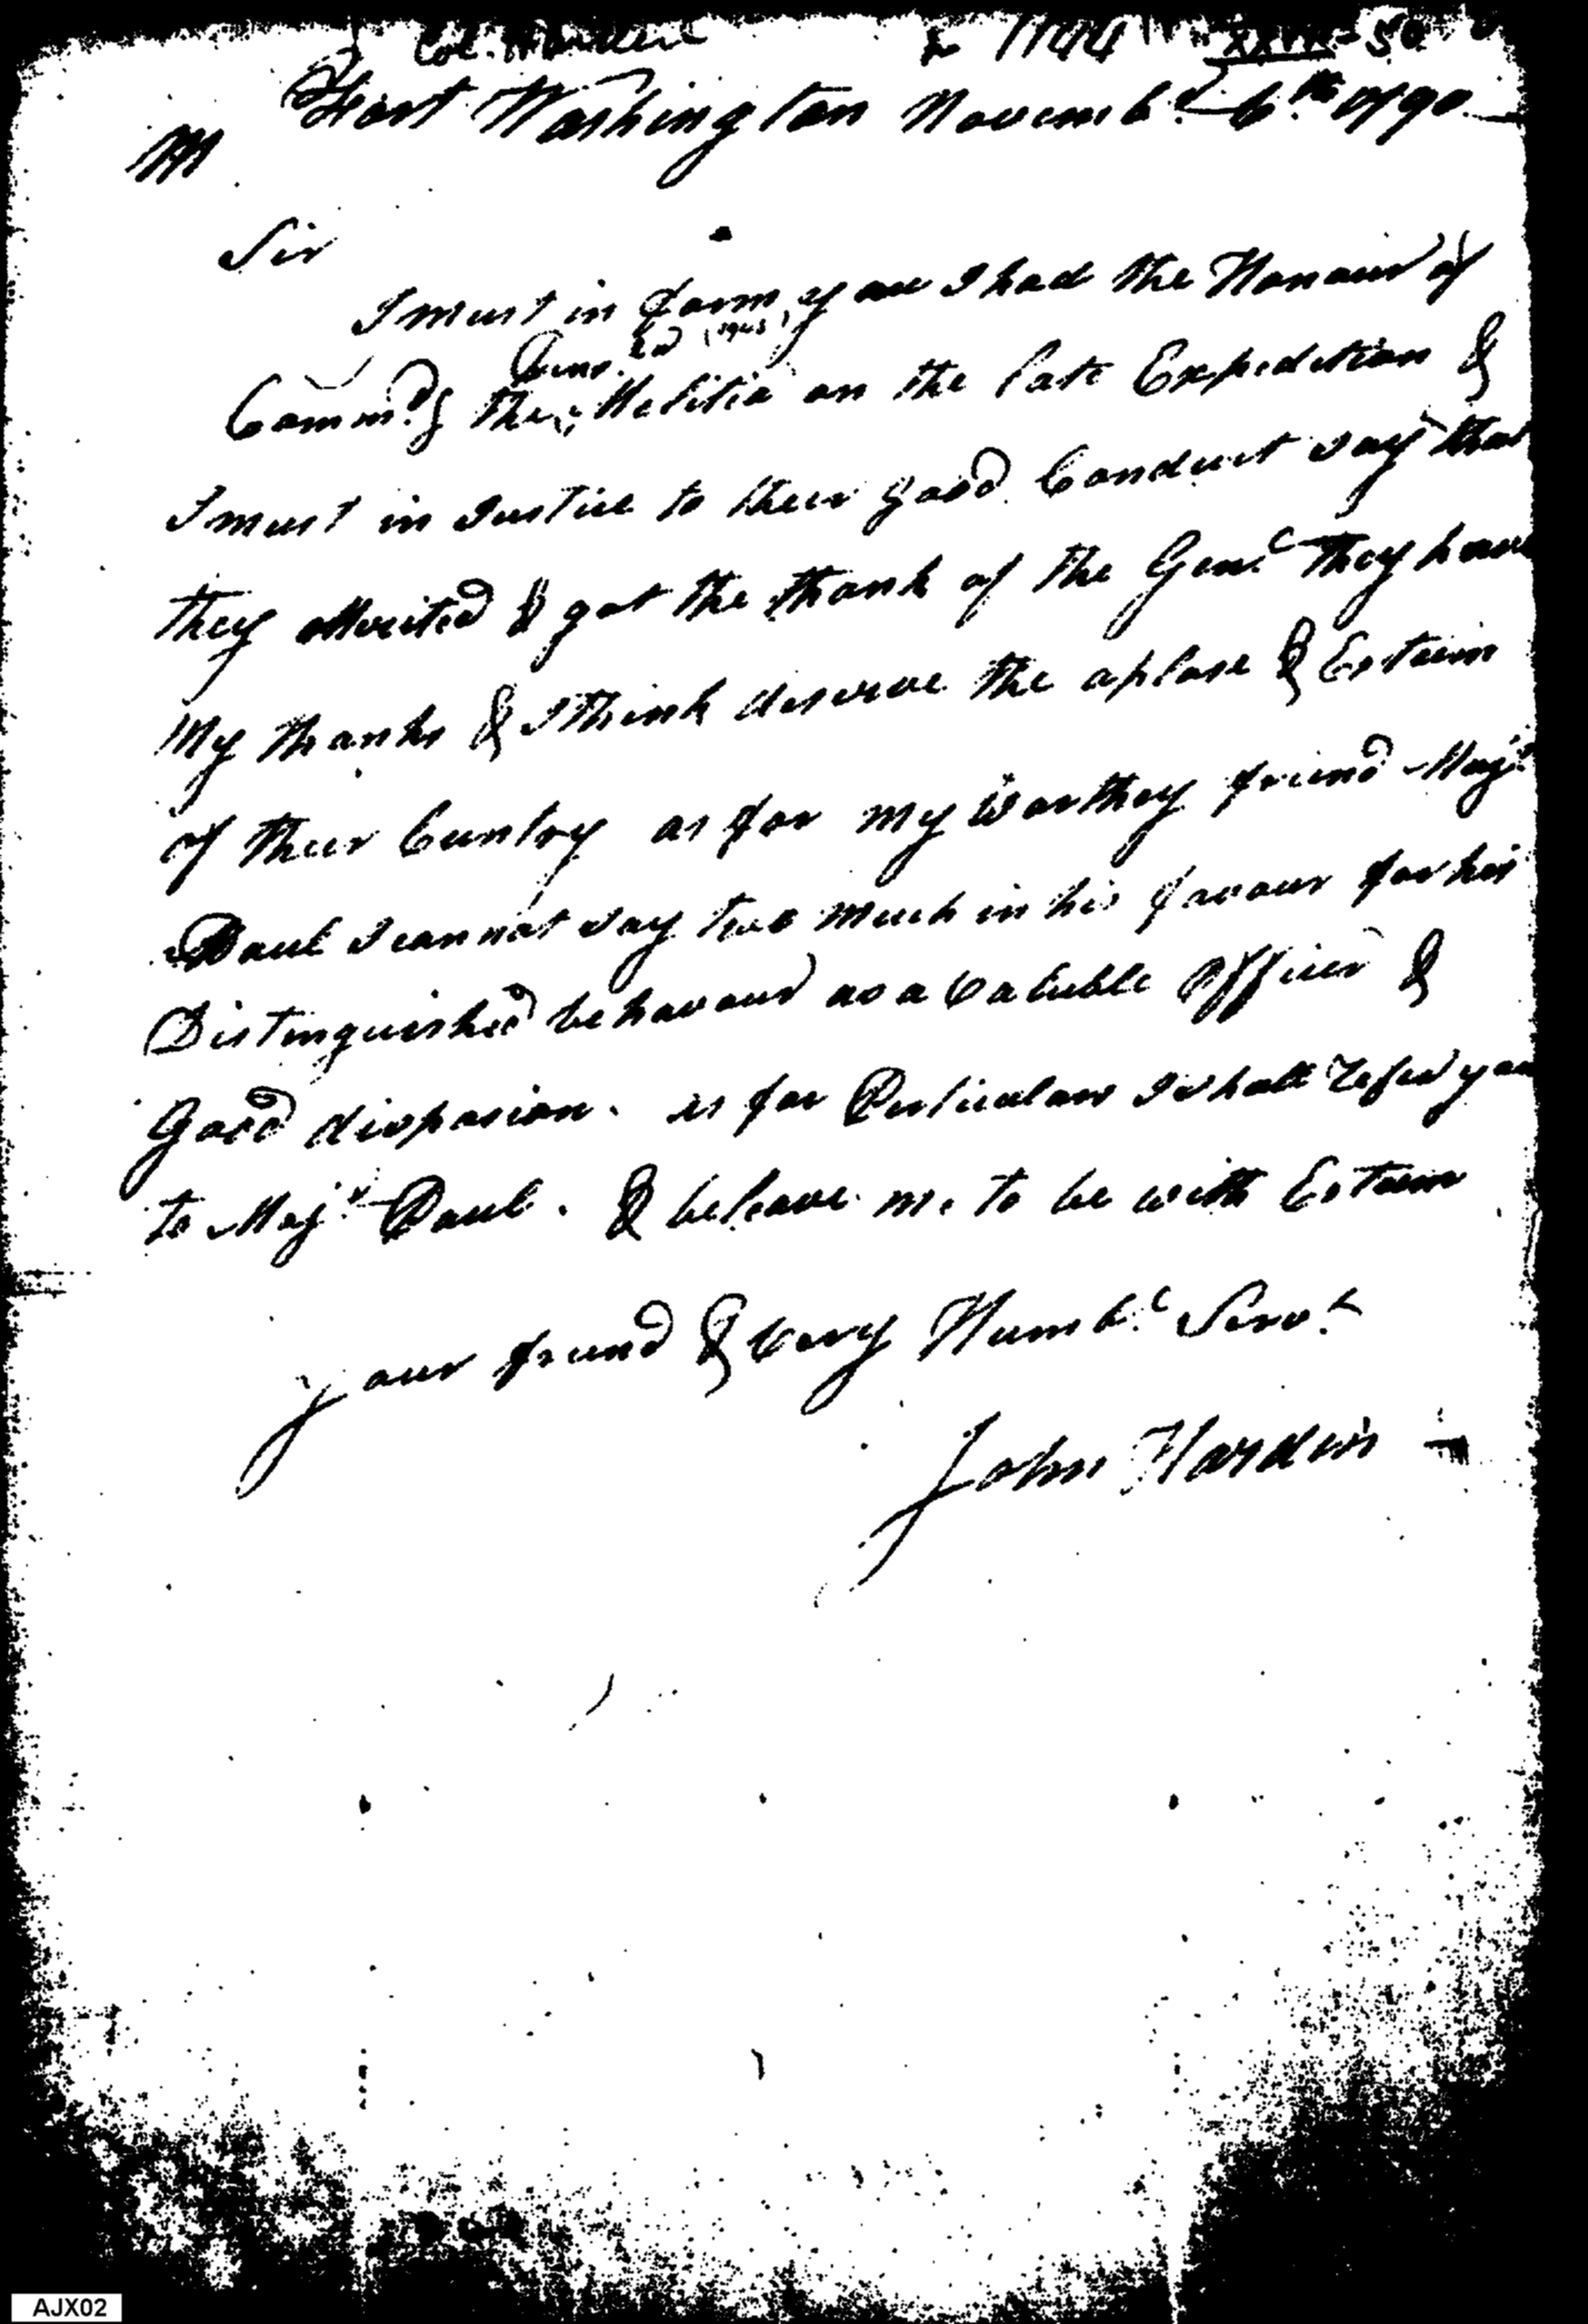 Col. Hardin 1144 XXVII-50
Fort Washington Novembr. 6th. 1790
M
Sir
I must in form you I had the Honour of
Penns.
Commdg the Melitia on the late Expedition &
I must in Justice to their good Conduct say that
they Merited & got the thank of the Genl. They have
My thanks & I think deserve the aplase & Esteem
of their Cuntry as for my Worthey friend Majr.
Paul I can not say two much in his favour for his
Distinguished behavour as a Valuble Officer &
Good disposion. as for Perticulars I shall Refer you
to Majr. Paul. & beleave me to be with Esteem
your friend & Very Humbl. Servt.
John Hardin
AJX02